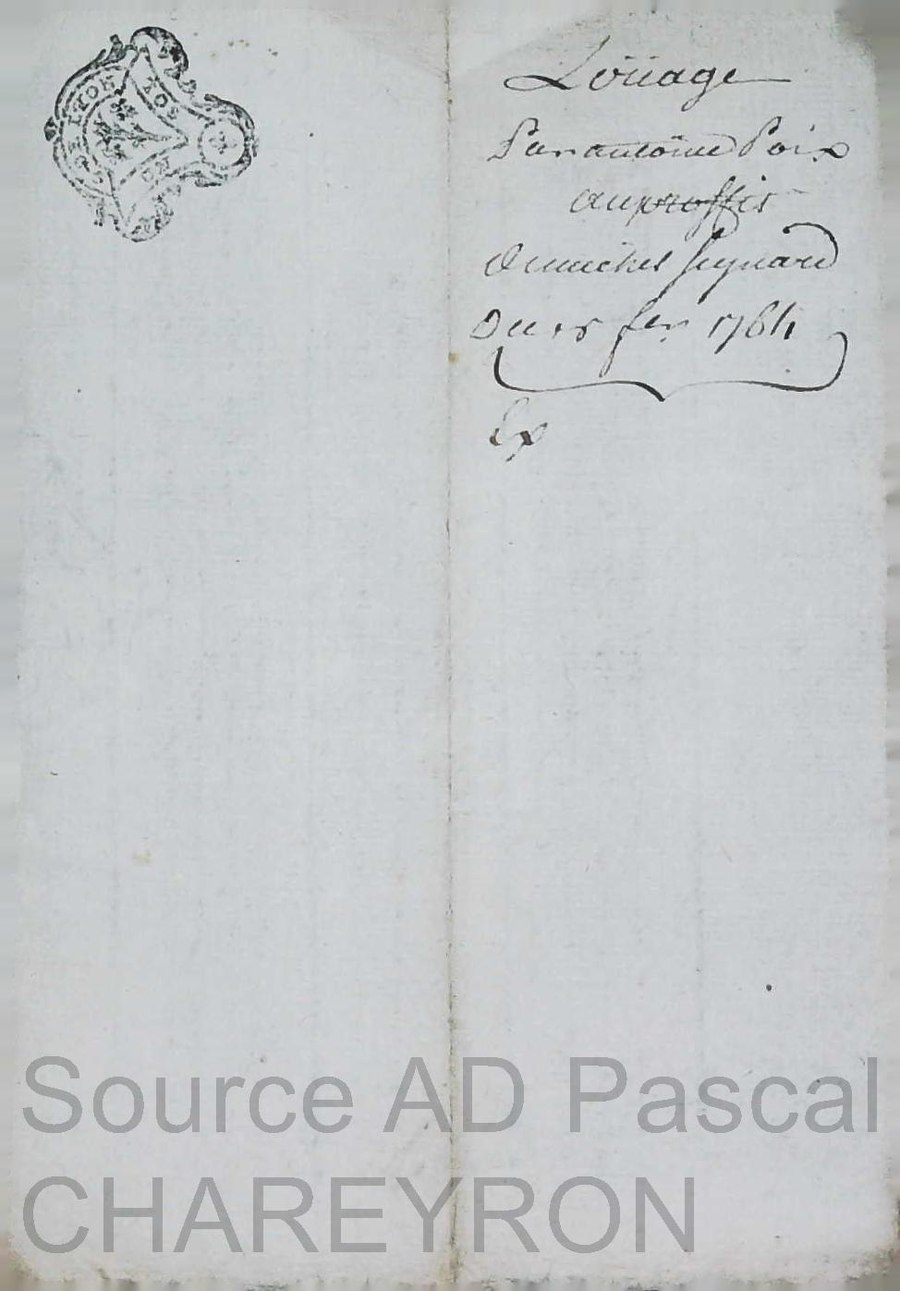 Loüage
Par antoine Poix
au proffit
De michel Seynard
Du 15 fer 1764
Ex
Source AD Pascal
CHAREYRON